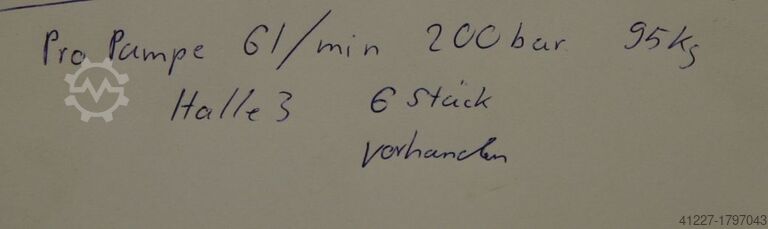 Pro Pumpe 6l/min 200bar 95kg
Halle 3 6 Stück
vorhanden
41227-1797043